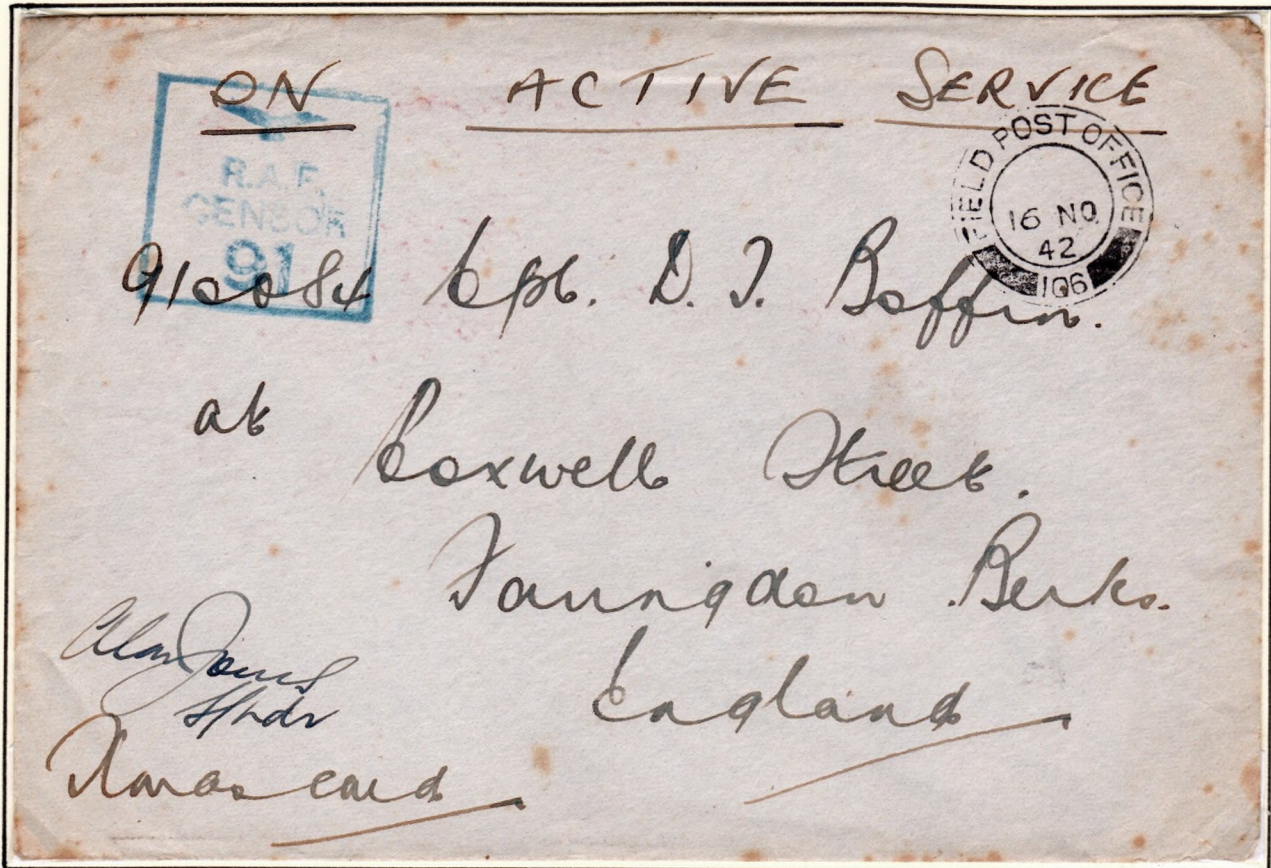 ON ACTIVE SERVICE
R.A.F.
CENSOR
91
FIELD POST OFFICE
16 NO
42
106
Cpl. D. J. Boffin.
at Coxwell Street.
Farringdon Berks.
England
Alan Jones
Xmas card